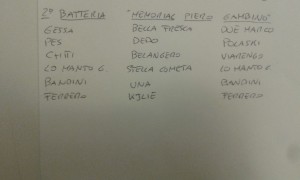 2ª BATTERIA "MEMORIAL PIERO GAMBINO"
GESSA BELLA FRESCA DUE MARCO
PES DERO POLASKI
CHITI BELANGERO VIARENGO
LO MANTO G. STELLA COMETA LO MANTO G.
BANDINI UNA BANDINI
FERRERO KYLIE FERRERO